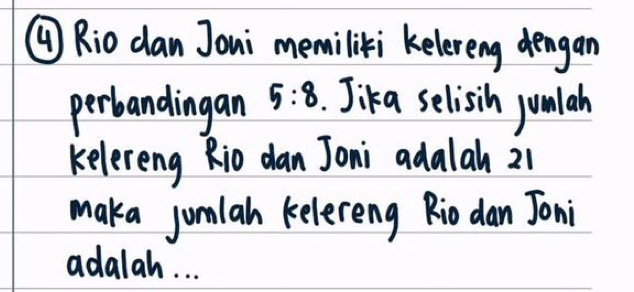 ④ Rio dan Joni memiliki kelereng dengan
perbandingan 5:8. Jika selisih jumlah
kelereng Rio dan Joni adalah 21
maka jumlah kelereng Rio dan Joni
adalah...